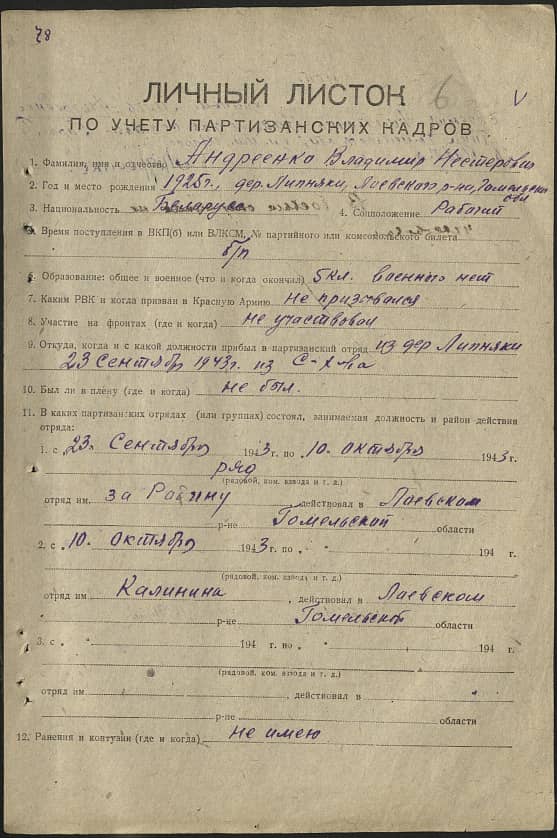 78
6
V
ЛИЧНЫЙ ЛИСТОК
ПО УЧЕТУ ПАРТИЗАНСКИХ КАДРОВ
1. Фамилия, имя и отчество Андреенко Владимир Нестерович
2. Год и место рождения 1925г., дер. Липняки, Лоевского р-на, Гомельской
обл
3. Национальность Беларусс 4. Соцположение Рабочий
5. Время поступления в ВКП(б) или ВЛКСМ, № партийного или комсомольского билета
б/п
6. Образование: общее и военное (что и когда окончил) 5 кл. военного нет
7. Каким РВК и когда призван в Красную Армию не призывался
8. Участие на фронтах (где и когда) не участвовал
9. Откуда, когда и с какой должности прибыл в партизанский отряд из дер Липняки
23 Сентября 1943г. из С-х-ва
10. Был ли в плену (где и когда) не был.
11. В каких партизанских отрядах (или группах) состоял, занимаемая должность и район действия
отряда:
1. с 23. Сентября 1943 г. по 10. октября 1943 г.
ряд
(рядовой, ком. взвода и т. д.)
отряд им. за Родину, действовал в Лоевском
р-не Гомельской области
2. с 10. октября 1943 г. по " " 194 г.
(рядовой, ком. взвода и т. д.)
отряд им. Калинина, действовал в Лоевском
р-не Гомельской области
3. с " " 194 г. по " " 194 г.
(рядовой, ком. взвода и т. д.)
отряд им. , действовал в
р-не области
12. Ранения и контузии (где и когда) не имею